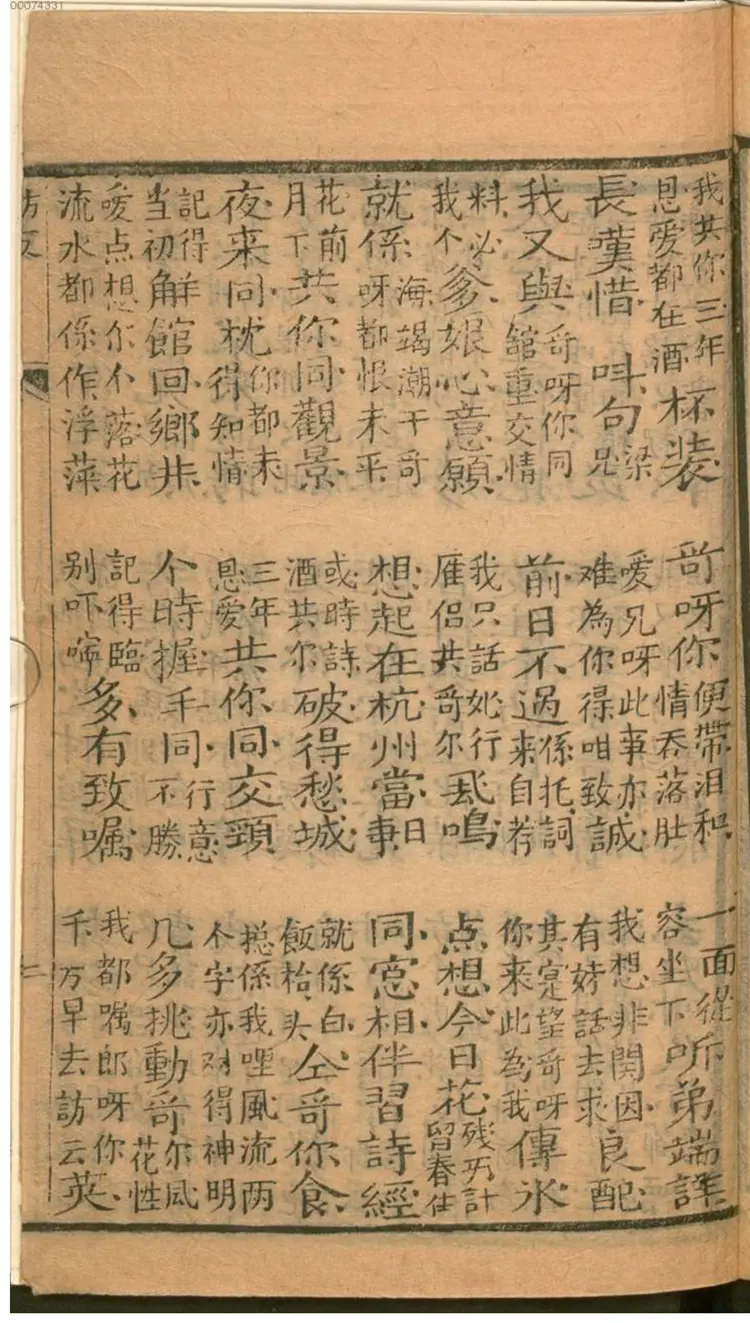 我共你三年恩愛都在酒杯装
哥呀你便帶泪和情吞落肚
一面從容坐下听弟端詳
長嘆惜 呌句梁兄
嗳兄呀此事亦难為你得咁致誠
我想非関因有好話去求良配
我又與哥呀你同舘重交情
前日不過係托詞来自荐
其寔望哥呀你来此為我傳氷
料必我个爹娘心意願
我只話行雁侣共哥尔鳴
点想今日花残冇計留春住
就係海竭潮干哥呀都恨未平
想起在杭州當日事
同窓相伴習詩經
花前月下共你同觀景
或時詩酒共尔破得愁城
就係白飯枱头仝哥你食
夜来同枕你都未得知情
三年恩愛共你同交頸
捴係我哩風流两个字亦对得神明
記得当初觧館回鄉井
个時握手同行意不勝
几多挑動哥尔风花性
嗳点想尔今落花流水都係作浮萍
記得臨别吓啼多有致嘱
我都嘱郎呀你千万早去訪云英
訪友
二
00074331